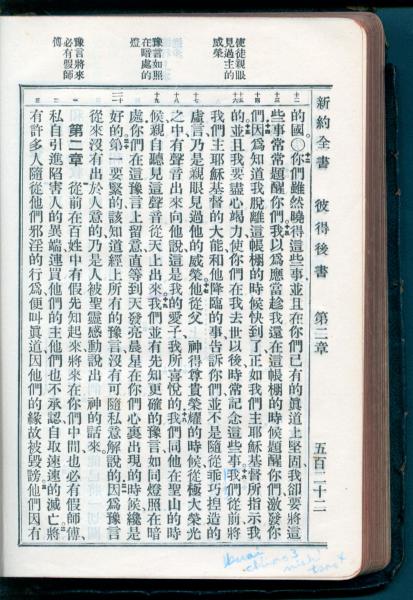 新約全書 彼得後書 第二章 五百二十二
使徒親眼
見過主的
威榮
豫言如照
在暗處的
燈
豫言將來
必有假師
傅
的國○你們雖然曉得這些事並且在你們已有的眞道上堅固我卻要將這
些事常常題醒你們我以爲應當趁我還在這帳棚的時候題醒你們激發你
們因爲知道我脫離這帳棚的時候快到了正如我們主耶穌基督所指示我
的並且我要盡心竭力使你們在我去世以後時常記念這些事我們從前將
我們主耶穌基督的大能和他降臨的事告訴你們並不是隨從乖巧揑造的
虛言乃是親眼見過他的威榮他從父 神得尊貴榮耀的時候從極大榮光
之中有聲音出來向他說這是我的愛子我所喜悅的我們同他在聖山的時
候親自聽見這聲音從天上出來我們並有先知更確的豫言如同燈照在暗
處你們在這豫言上留意直等到天發亮晨星在你們心裏出現的時候纔是
好的第一要緊的該知道經上所有的豫言沒有可隨私意解說的因爲豫言
從來沒有出於人意的乃是人被聖靈感動說出 神的話來
第二章 從前在百姓中有假先知起來將來在你們中間也必有假師傅
私自引進陷害人的異端連買他們的主他們也不承認自取速速的滅亡將
有許多人隨從他們邪淫的行爲便叫眞道因他們的緣故被毀謗他們因有